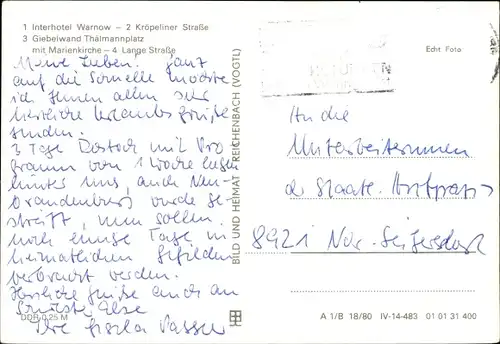 1 Interhotel Warnow – 2 Kröpeliner Straße
3 Giebelwand Thälmannplatz
mit Marienkirche – 4 Lange Straße
Echt Foto
Meine Lieben! Ganz
auf die Schnelle möchte
ich Ihnen allen sehr
herzliche Urlaubsgrüße
senden.
3 Tage Rostock mit Pro
gramm von 1 Woche liegen
hinter uns, auch Neu-
brandenburg wurde ge-
streift, nun sollen
noch einige Tage in
heimatlichen Gefilden
verbracht werden.
Herzliche Grüße auch an
Schwester Else
Ihre Gisela
An die
Mitarbeiterinnen
d. Staatl. Arztpraxis
8921 Ndr.-Seifersdorf
BILD UND HEIMAT REICHENBACH (VOGTL)
DDR 0,25 M
A 1/B 18/80 IV-14-483 01 01 31 400